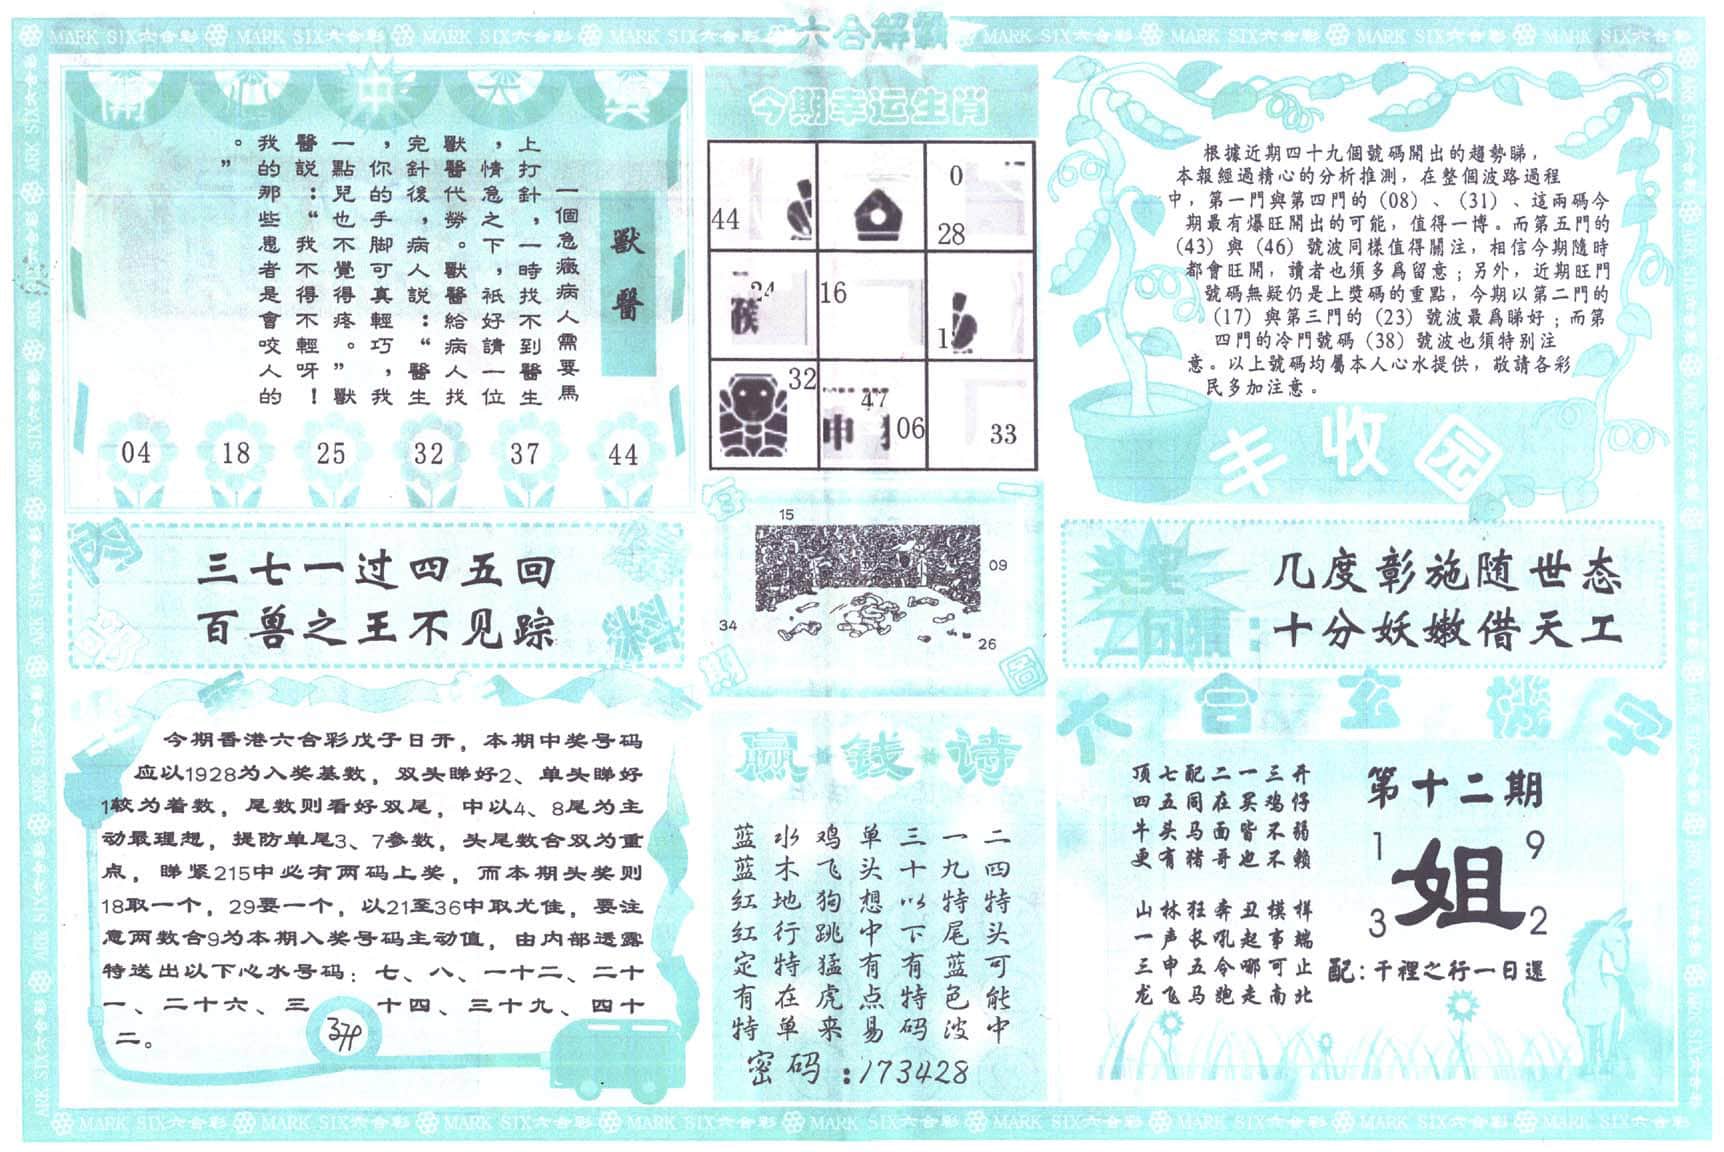 MARK SIX六合彩 MARK SIX六合彩 MARK SIX六合彩 MARK SIX六合彩 六合解 MARK SIX六合彩 MARK SIX六合彩 MARK SIX六合彩 MARK SIX六合彩
開心中大獎
獸醫
一個急癥病人需要馬
上打針，一時找不到醫生
，情急之下，祇好請一位
獸醫代勞。獸醫給病人找
完針後，病人説：“醫生
，你的手脚可真輕巧，我
一點兒也不覺得疼。”獸
醫説：“我不得不輕呀！
我的那些患者是會咬人的
。”
04 18 25 32 37 44
今期幸运生肖
44 0 28
24 猴 16 1
32 47 中 06 33
根據近期四十九個號碼開出的趨勢睇，
本報經過精心的分析推測，在整個波路過程
中，第一門與第四門的（08）、（31）、這兩碼今
期最有爆旺開出的可能，值得一博。而第五門的
（43）與（46）號波同樣值得關注，相信今期隨時
都會旺開，讀者也須多爲留意；另外，近期旺門
號碼無疑仍是上獎碼的重點，今期以第二門的
（17）與第三門的（23）號波最爲睇好；而第
四門的冷門號碼（38）號波也須特别注
意。以上號碼均屬本人心水提供，敬請各彩
民多加注意。
丰收园
三七一过四五回
百兽之王不见踪
15
09
34
26
圖
几度彰施随世态
十分妖嫩借天工
今期香港六合彩戊子日开，本期中奖号码
应以1928为入奖基数，双头睇好2、单头睇好
1较为着数，尾数则看好双尾，中以4、8尾为主
动最理想，提防单尾3、7参数，头尾数合双为重
点，睇紧215中必有两码上奖，而本期头奖则
18取一个，29要一个，以21至36中取尤佳，要注
意两数合9为本期入奖号码主动值，由内部透露
特送出以下心水号码：七、八、一十二、二十
一、二十六、三十四、三十九、四十
二。
赢钱诗
二四特头可能中
一九特尾蓝色波
三十以下有特码
单头想中有点易
鸡飞狗跳猛虎来
水木地行特在单
蓝蓝红红定有特
密码：173428
六合玄機字
顶七配二一三开
四五同在买鸡仔
牛头马面皆不弱
更有猪哥也不赖
山林狂奔丑模样
一声长吼起事端
三申五令哪可止
龙飞马跑走南北
第十二期
1 9
姐
3 2
配：千裡之行一日還
MARK SIX六合彩 MARK SIX六合彩 MARK SIX六合彩 MARK SIX六合彩 MARK SIX六合彩 MARK SIX六合彩 MARK SIX六合彩 MARK SIX六合彩 MARK SIX六合彩